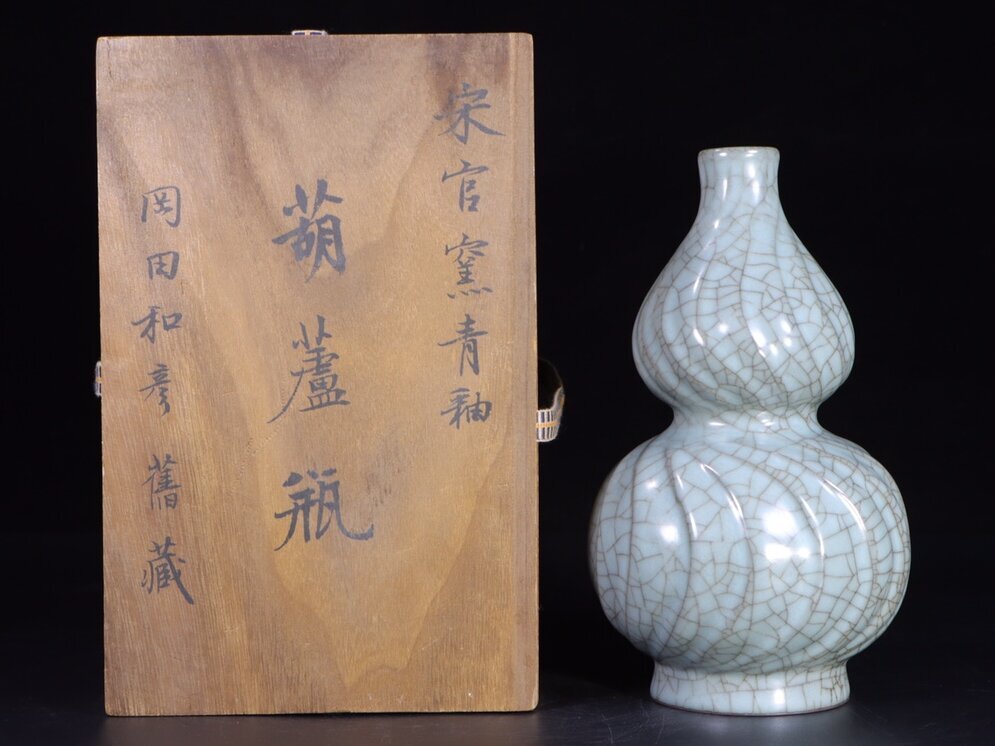 宋官窯青釉
葫蘆瓶
岡田和彦舊藏